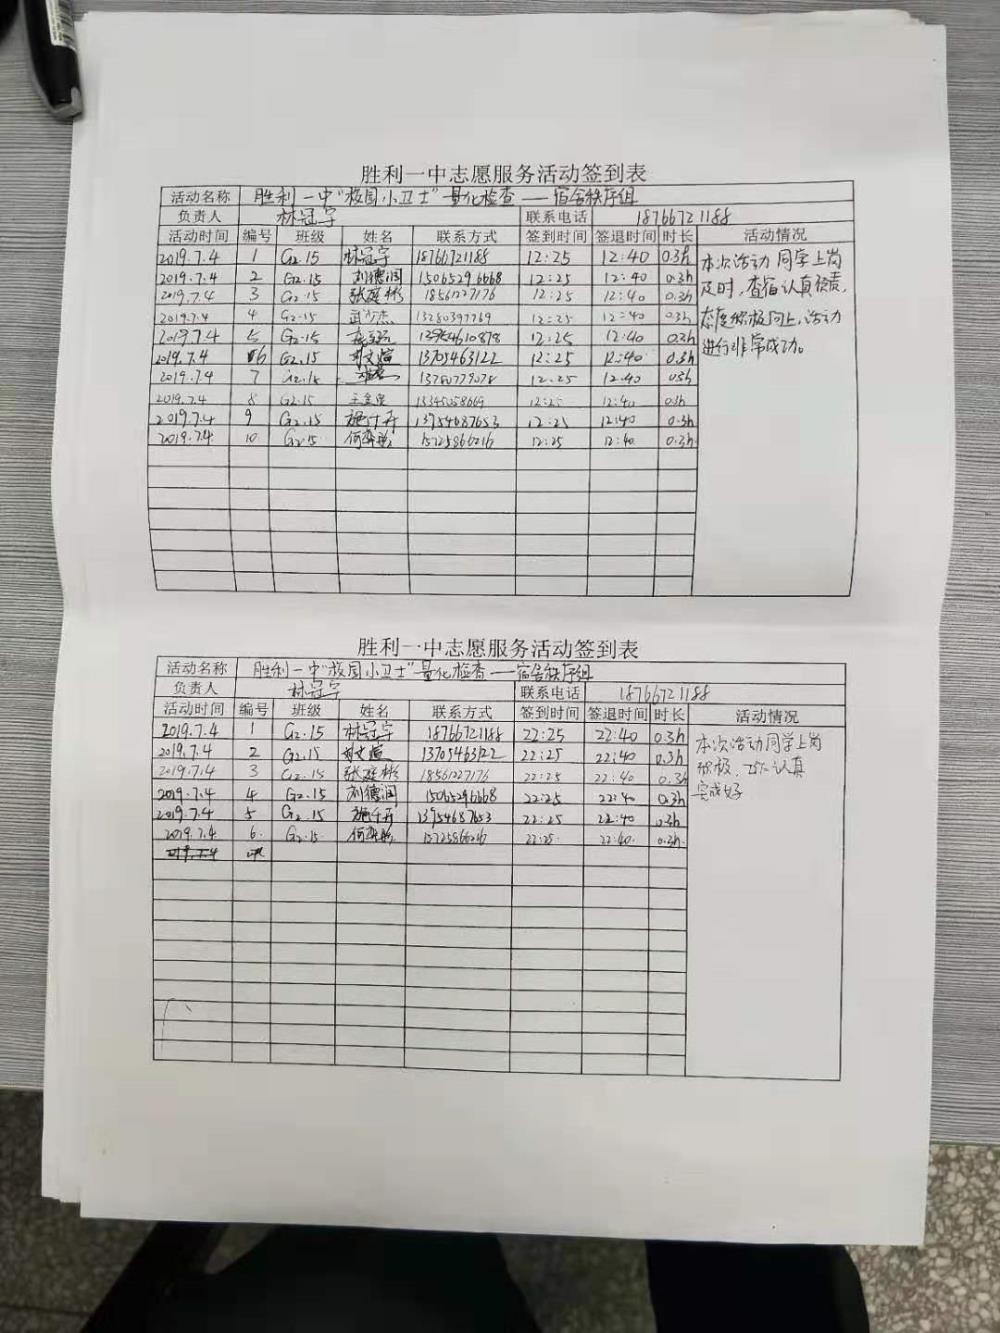 胜利一中志愿服务活动签到表
活动名称 胜利一中"校园小卫士"量化检查——宿舍秩序组
负责人 林冠宇 联系电话 18766721188
活动时间 编号 班级 姓名 联系方式 签到时间 签退时间 时长 活动情况
2019.7.4 1 G2.15 林冠宇 18766721188 12:25 12:40 0.3h
2019.7.4 2 G2.15 刘德润 15065296668 12:25 12:40 0.3h
2019.7.4 3 G2.15 张庭彬 18561227176 12:25 12:40 0.3h
2019.7.4 4 G2.15 武少杰 13280397769 12:25 12:40 0.3h
2019.7.4 5 G2.15 12:25 12:40 0.3h
2019.7.4 6 G2.15 刘文煊 13705463122 12:25 12:40 0.3h
2019.7.4 7 G2.15 13780779078 12:25 12:40 0.3h
2019.7.4 8 G2.15 13345058669 12:25 12:40 0.3h
2019.7.4 9 G2.15 施于开 13954687653 12:25 12:40 0.3h
2019.7.4 10 G2.15 15725866216 12:25 12:40 0.3h
本次活动同学上岗
及时,查宿认真负责,
态度积极向上,活动
进行非常成功。
胜利一中志愿服务活动签到表
活动名称 胜利一中"校园小卫士"量化检查——宿舍秩序组
负责人 林冠宇 联系电话 18766721188
活动时间 编号 班级 姓名 联系方式 签到时间 签退时间 时长 活动情况
2019.7.4 1 G2.15 林冠宇 18766721188 22:25 22:40 0.3h
2019.7.4 2 G2.15 刘文煊 13705463122 22:25 22:40 0.3h
2019.7.4 3 G2.15 张庭彬 18561227176 22:25 22:40 0.3h
2019.7.4 4 G2.15 刘德润 15065296668 22:25 22:40 0.3h
2019.7.4 5 G2.15 施于开 13954687653 22:25 22:40 0.3h
2019.7.4 6 G2.15 15725866216 22:25 22:40 0.3h
本次活动同学上岗
积极,工作认真
完成好